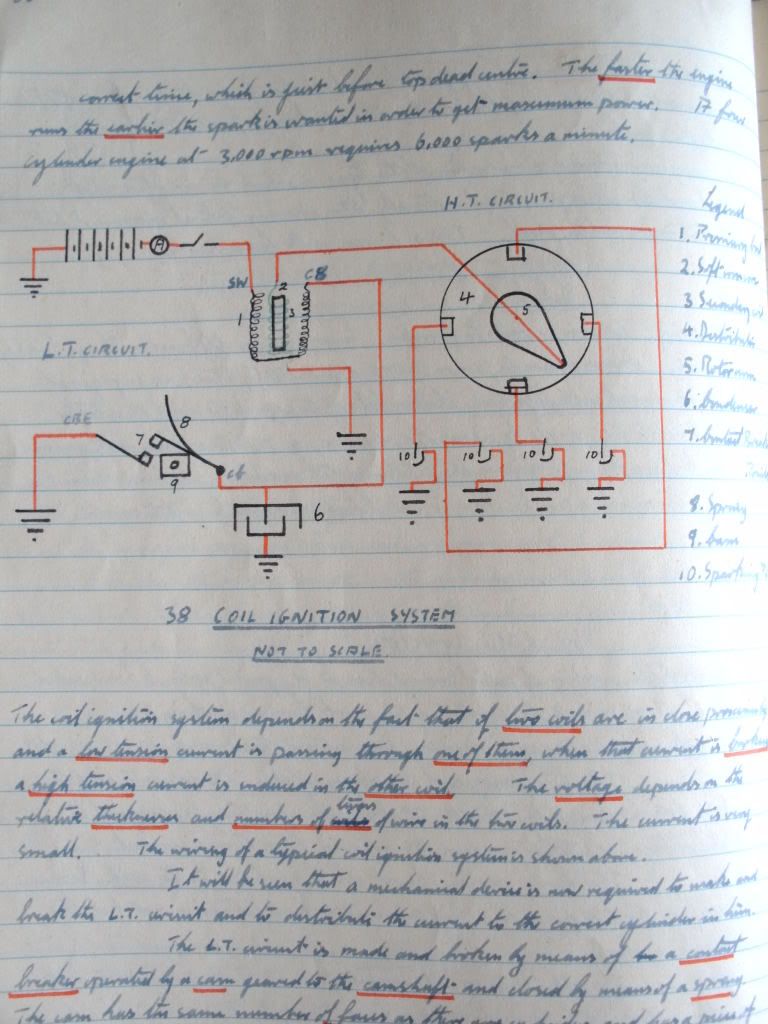 correct time, which is just before top dead centre. The faster the engine
runs the earlier the spark is wanted in order to get maximum power. A four
cylinder engine at 3,000 rpm requires 6,000 sparks a minute.
H.T. CIRCUIT.
Legend
1. Primary
2. Soft
3 Secondary
4. Distributor
5. Rotor arm
6. Condenser
7. Contact Breaker
Points
8. Spring
9. Cam
10. Sparking
A
SW
CB
1
2
3
4
5
L.T. CIRCUIT.
CBE
7
8
9
CB
6
10
10
10
10
38 COIL IGNITION SYSTEM
NOT TO SCALE
The coil ignition system depends on the fact that if two coils are in close proximity
and a low tension current is passing through one of them, when that current is broken
a high tension current is induced in the other coil. The voltage depends on the
relative thicknesses and numbers of turns of wire in the two coils. The current is very
small. The wiring of a typical coil ignition system is shown above.
It will be seen that a mechanical device is now required to make and
break the L.T. circuit and to distribute the current to the correct cylinder in turn.
The L.T. circuit is made and broken by means of a contact
breaker operated by a cam geared to the camshaft and closed by means of a spring.
The cam has the same number of faces as there are and has a piece of